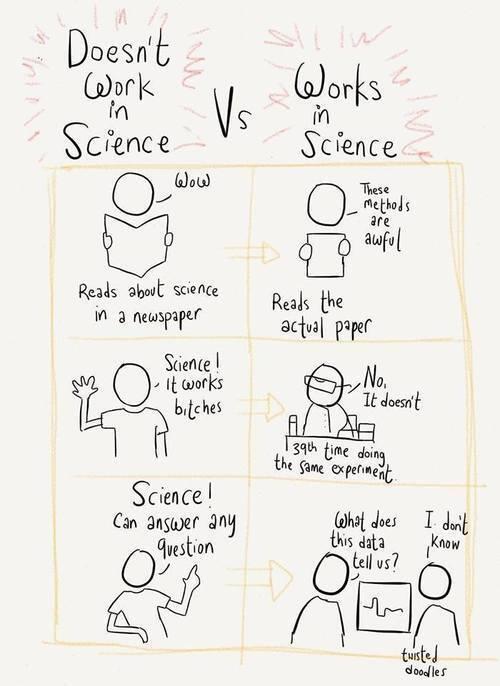 Doesn't
Work
in
Science
Vs
Works
in
Science
Wow
Reads about science
in a newspaper
These
methods
are
awful
Reads the
actual paper
Science!
It works
bitches
No,
It doesn't
39th time doing
the same experiment.
Science!
Can answer any
question
What does
this data
tell us?
I don't
know
twisted
doodles